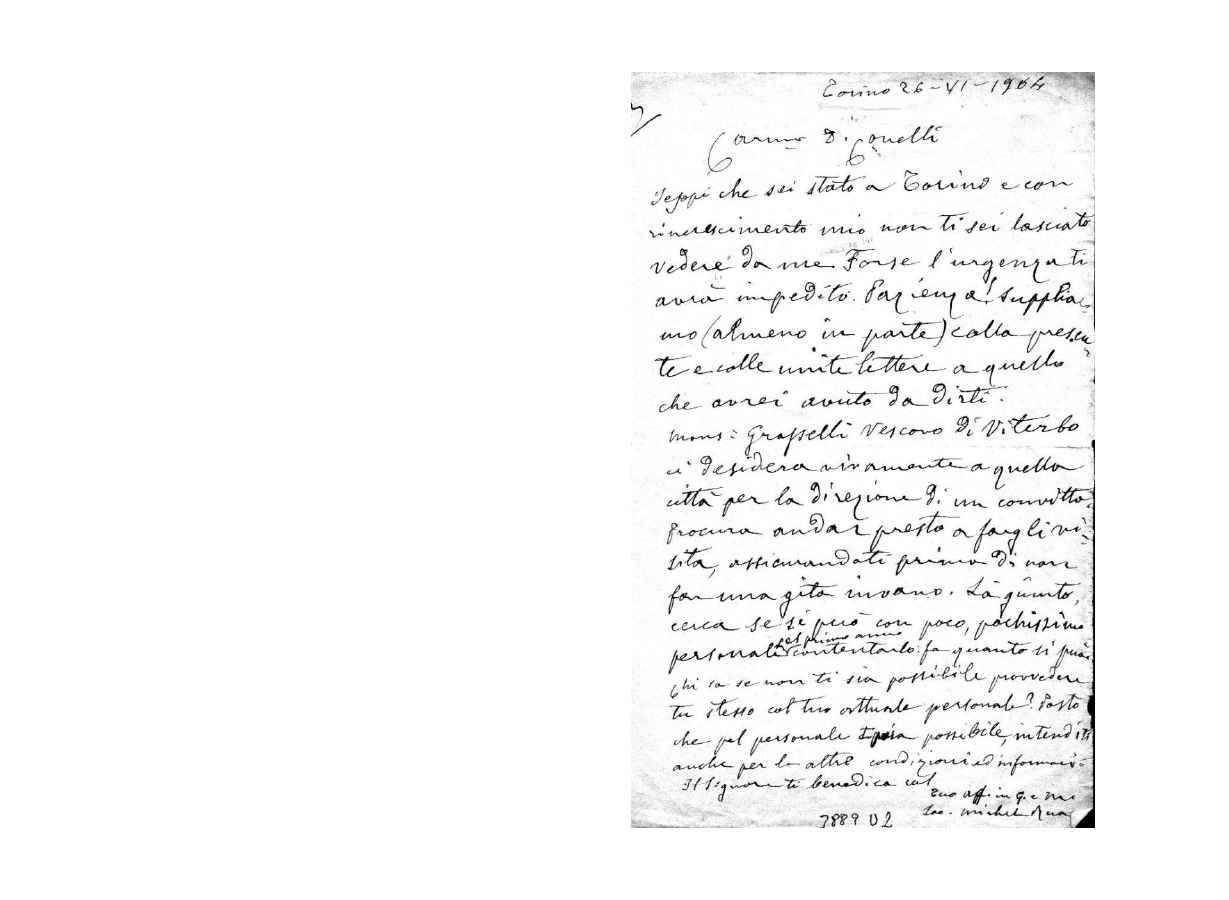 Torino 26-VI-1904
Carmo D. Conelli
Seppi che sei stato a Torino e con
rincrescimento mio non ti sei lasciato
vedere da me Forse l'urgenza ti
avrà impedito. Pazienza! Supplia-
mo (almeno in parte) colla presen-
te e colle unite lettere a quello
che avrei avuto da dirti.
Mons: Grasselli Vescovo di Viterbo
ci desidera vivamente a quella
città per la direzione di un convitto.
Procura andar presto a fargli vi-
sita, assicurandoti prima di non
far una gita invano. Là giunto,
cerca se si può con poco, pochissimo
pel primo anno
personale contentarlo: fa quanto si può.
Chi sa se non ti sia possibile provvedere
tu stesso col tuo attuale personale? Posto
che pel personale sia possibile, intenditi
anche per le altre condizioni ed informaci.
Il Signore ti benedica col
Tuo aff in G. e M.
Sac. Michel Rua
3889 D2